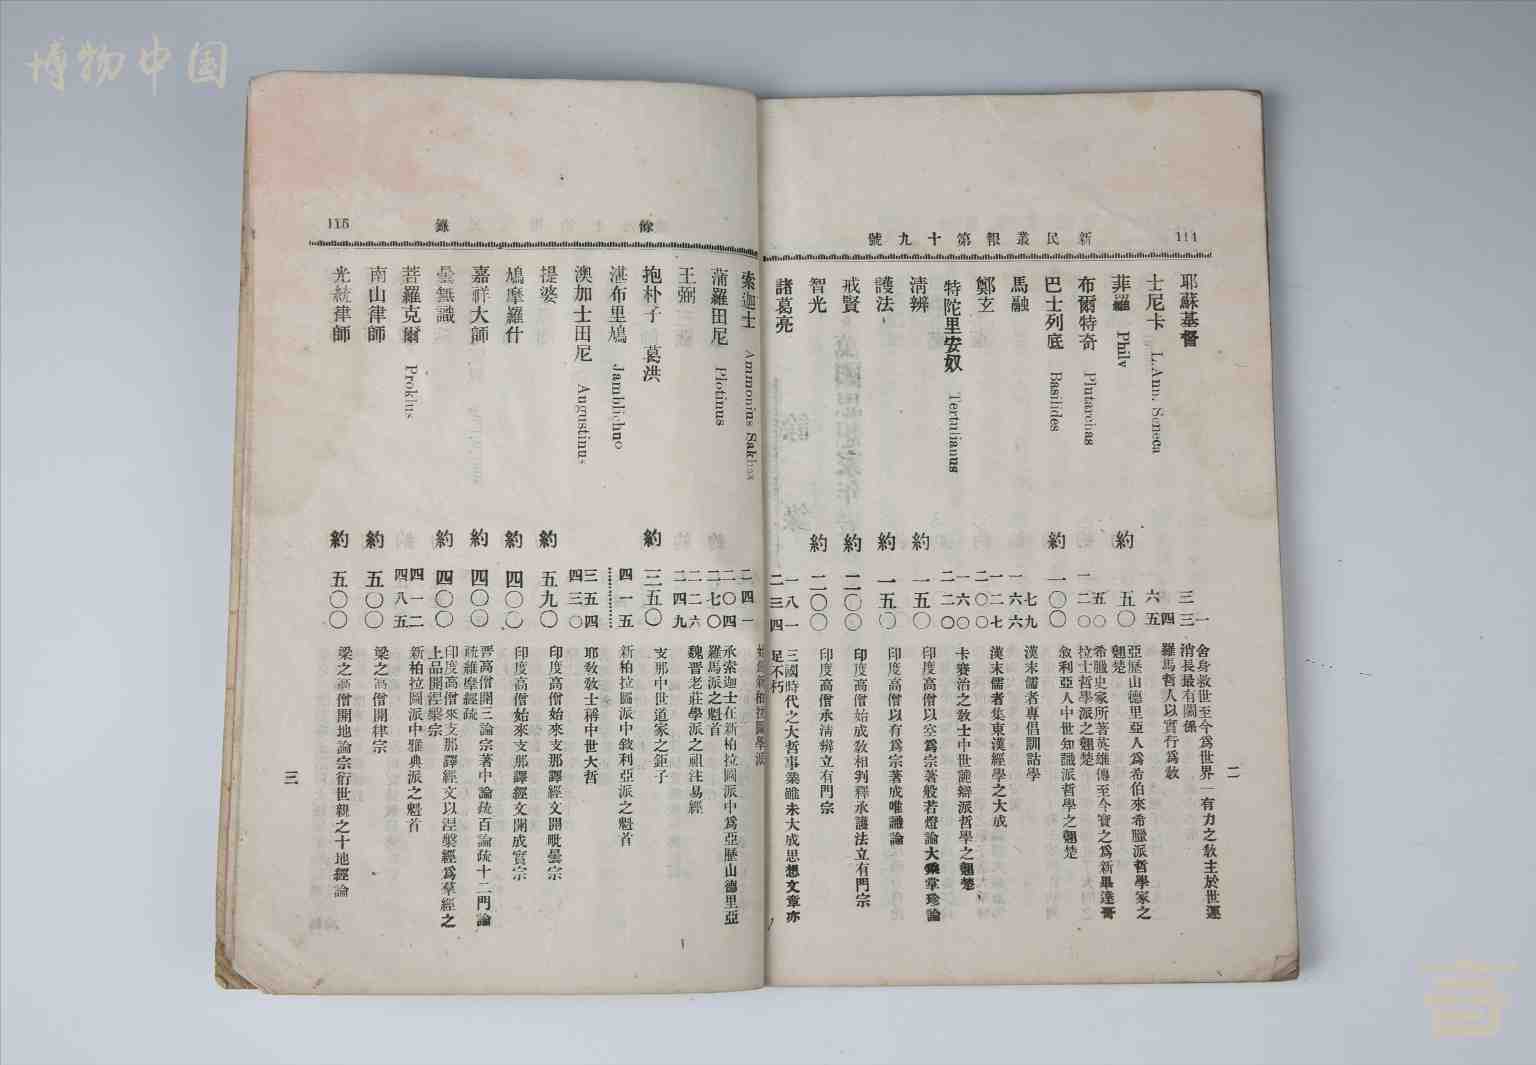 博物中国
114
新民叢報第十九號
二
耶蘇基督
三三一
舍身救世至今爲世界一有力之敎主於世運
消長最有關係
士尼卡 L. Ann. Seneca
四
六五
羅馬哲人以實行爲敎
菲羅 Philv
約 五〇
亞歷山德里亞人爲希伯來希臘派哲學家之
翹楚
布爾特奇 Plutarchas
五〇
一二〇
希臘史家所著英雄傳至今寶之爲新畢達哥
拉士哲學派之翹楚
巴士列底 Basilides
約 一〇〇
敘利亞人中世知識派哲學之翹楚
馬融
七九
一六六
漢末儒者專倡訓詁學
鄭玄
一二七
二〇〇
漢末儒者集東漢經學之大成
特陀里安奴 Tertulianus
一六〇
二二〇
卡賽治之敎士中世護辯派哲學之翹楚
清辨
約 一五〇
印度高僧以空爲宗著般若燈論大乘掌珍論
護法
約 一五〇
印度高僧以有爲宗著成唯識論
戒賢
約 二〇〇
印度高僧始成敎相判釋承護法立有門宗
智光
約 二〇〇
印度高僧承清辨立有門宗
諸葛亮
一八一
二三四
三國時代之大哲事業雖未大成思想文章亦
足不朽
115
餘錄
三
索迦士 Ammonius Sakkas
二四一
蒲羅田尼 Plotinus
二〇四
二七〇
承索迦士在新柏拉圖派中爲亞歷山德里亞
羅馬派之魁首
王弼
二二六
二四九
魏晋老莊學派之祖注易經
抱朴子 葛洪
約 三五〇
支那中世道家之鉅子
湛布里鳩 Jamblichno
四一五
新柏拉圖派中敘利亞派之魁首
澳加士田尼 Augustinus
三五四
四三〇
耶敎敎士稱中世大哲
提婆
約 五九〇
印度高僧始來支那譯經文開毗曇宗
鳩摩羅什
約 四〇〇
印度高僧始來支那譯經文開成實宗
嘉祥大師
約 四〇〇
晋高僧開三論宗著中論疏百論疏十二門論
疏維摩經疏
曇無讖
約 四〇〇
印度高僧來支那譯經文以涅槃經爲羣經之
上品開涅槃宗
菩羅克爾 Proklus
四一二
四八五
新柏拉圖派中雅典派之魁首
南山律師
約 五〇〇
梁之高僧開律宗
光統律師
約 五〇〇
梁之高僧開地論宗衍世親之十地經論